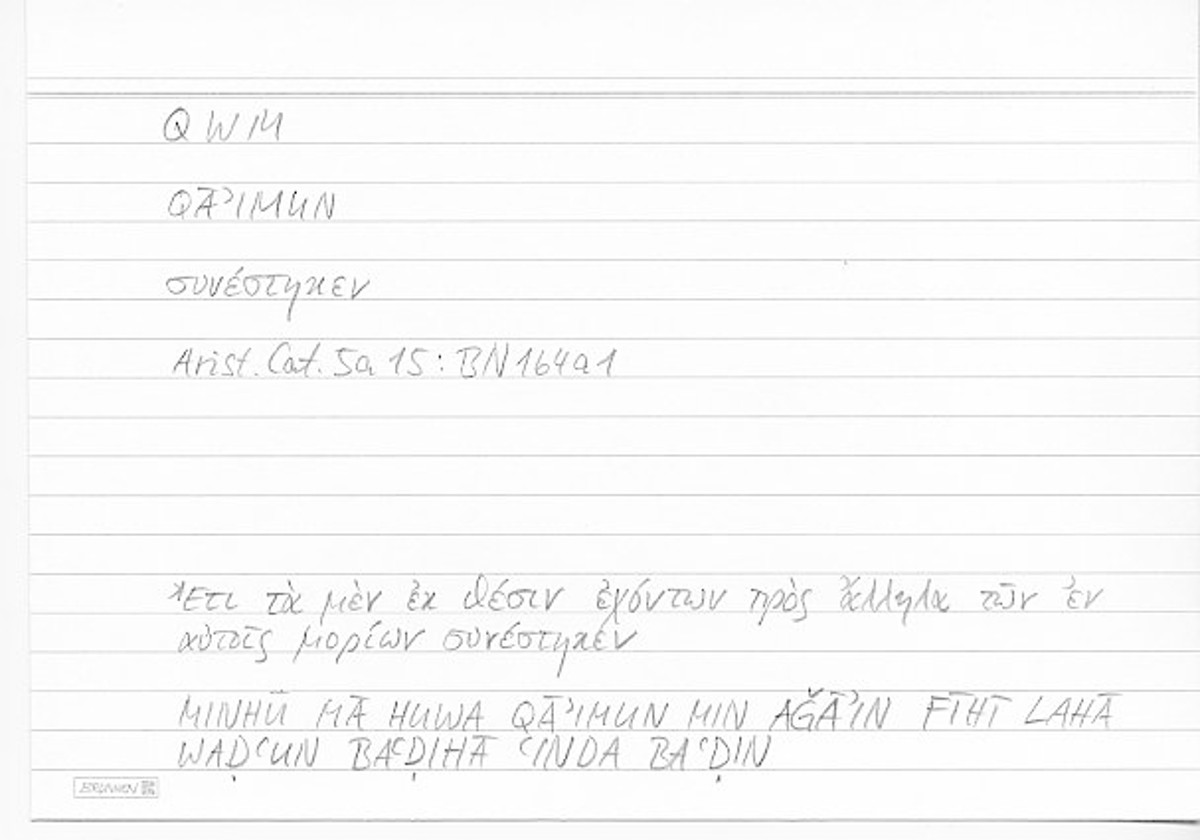 QWM
QĀʾIMUN
συνέστηκεν
Arist. Cat. 5a 15 : BN 164a1
Ἔτι τὰ μὲν ἐκ θέσιν ἐχόντων πρὸς ἄλληλα τῶν ἐν
αὐτοῖς μορίων συνέστηκεν
MINHŪ MĀ HUWA QĀʾIMUN MIN AǦZĀʾIN FĪHĪ LAHĀ
WAḌʿUN BAʿḌIHĀ ʿINDA BAʿḌIN
BRUNNEN